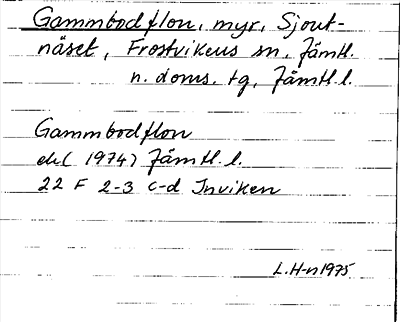 Gammbodflon, myr, Sjout-
näset, Frostvikens sn, Jämtl.
n. doms. tg, Jämtl. l.
Gammbodflon
ek( 1974) Jämtl. l.
22 F 2-3 c-d Inviken
L.H-n 1975